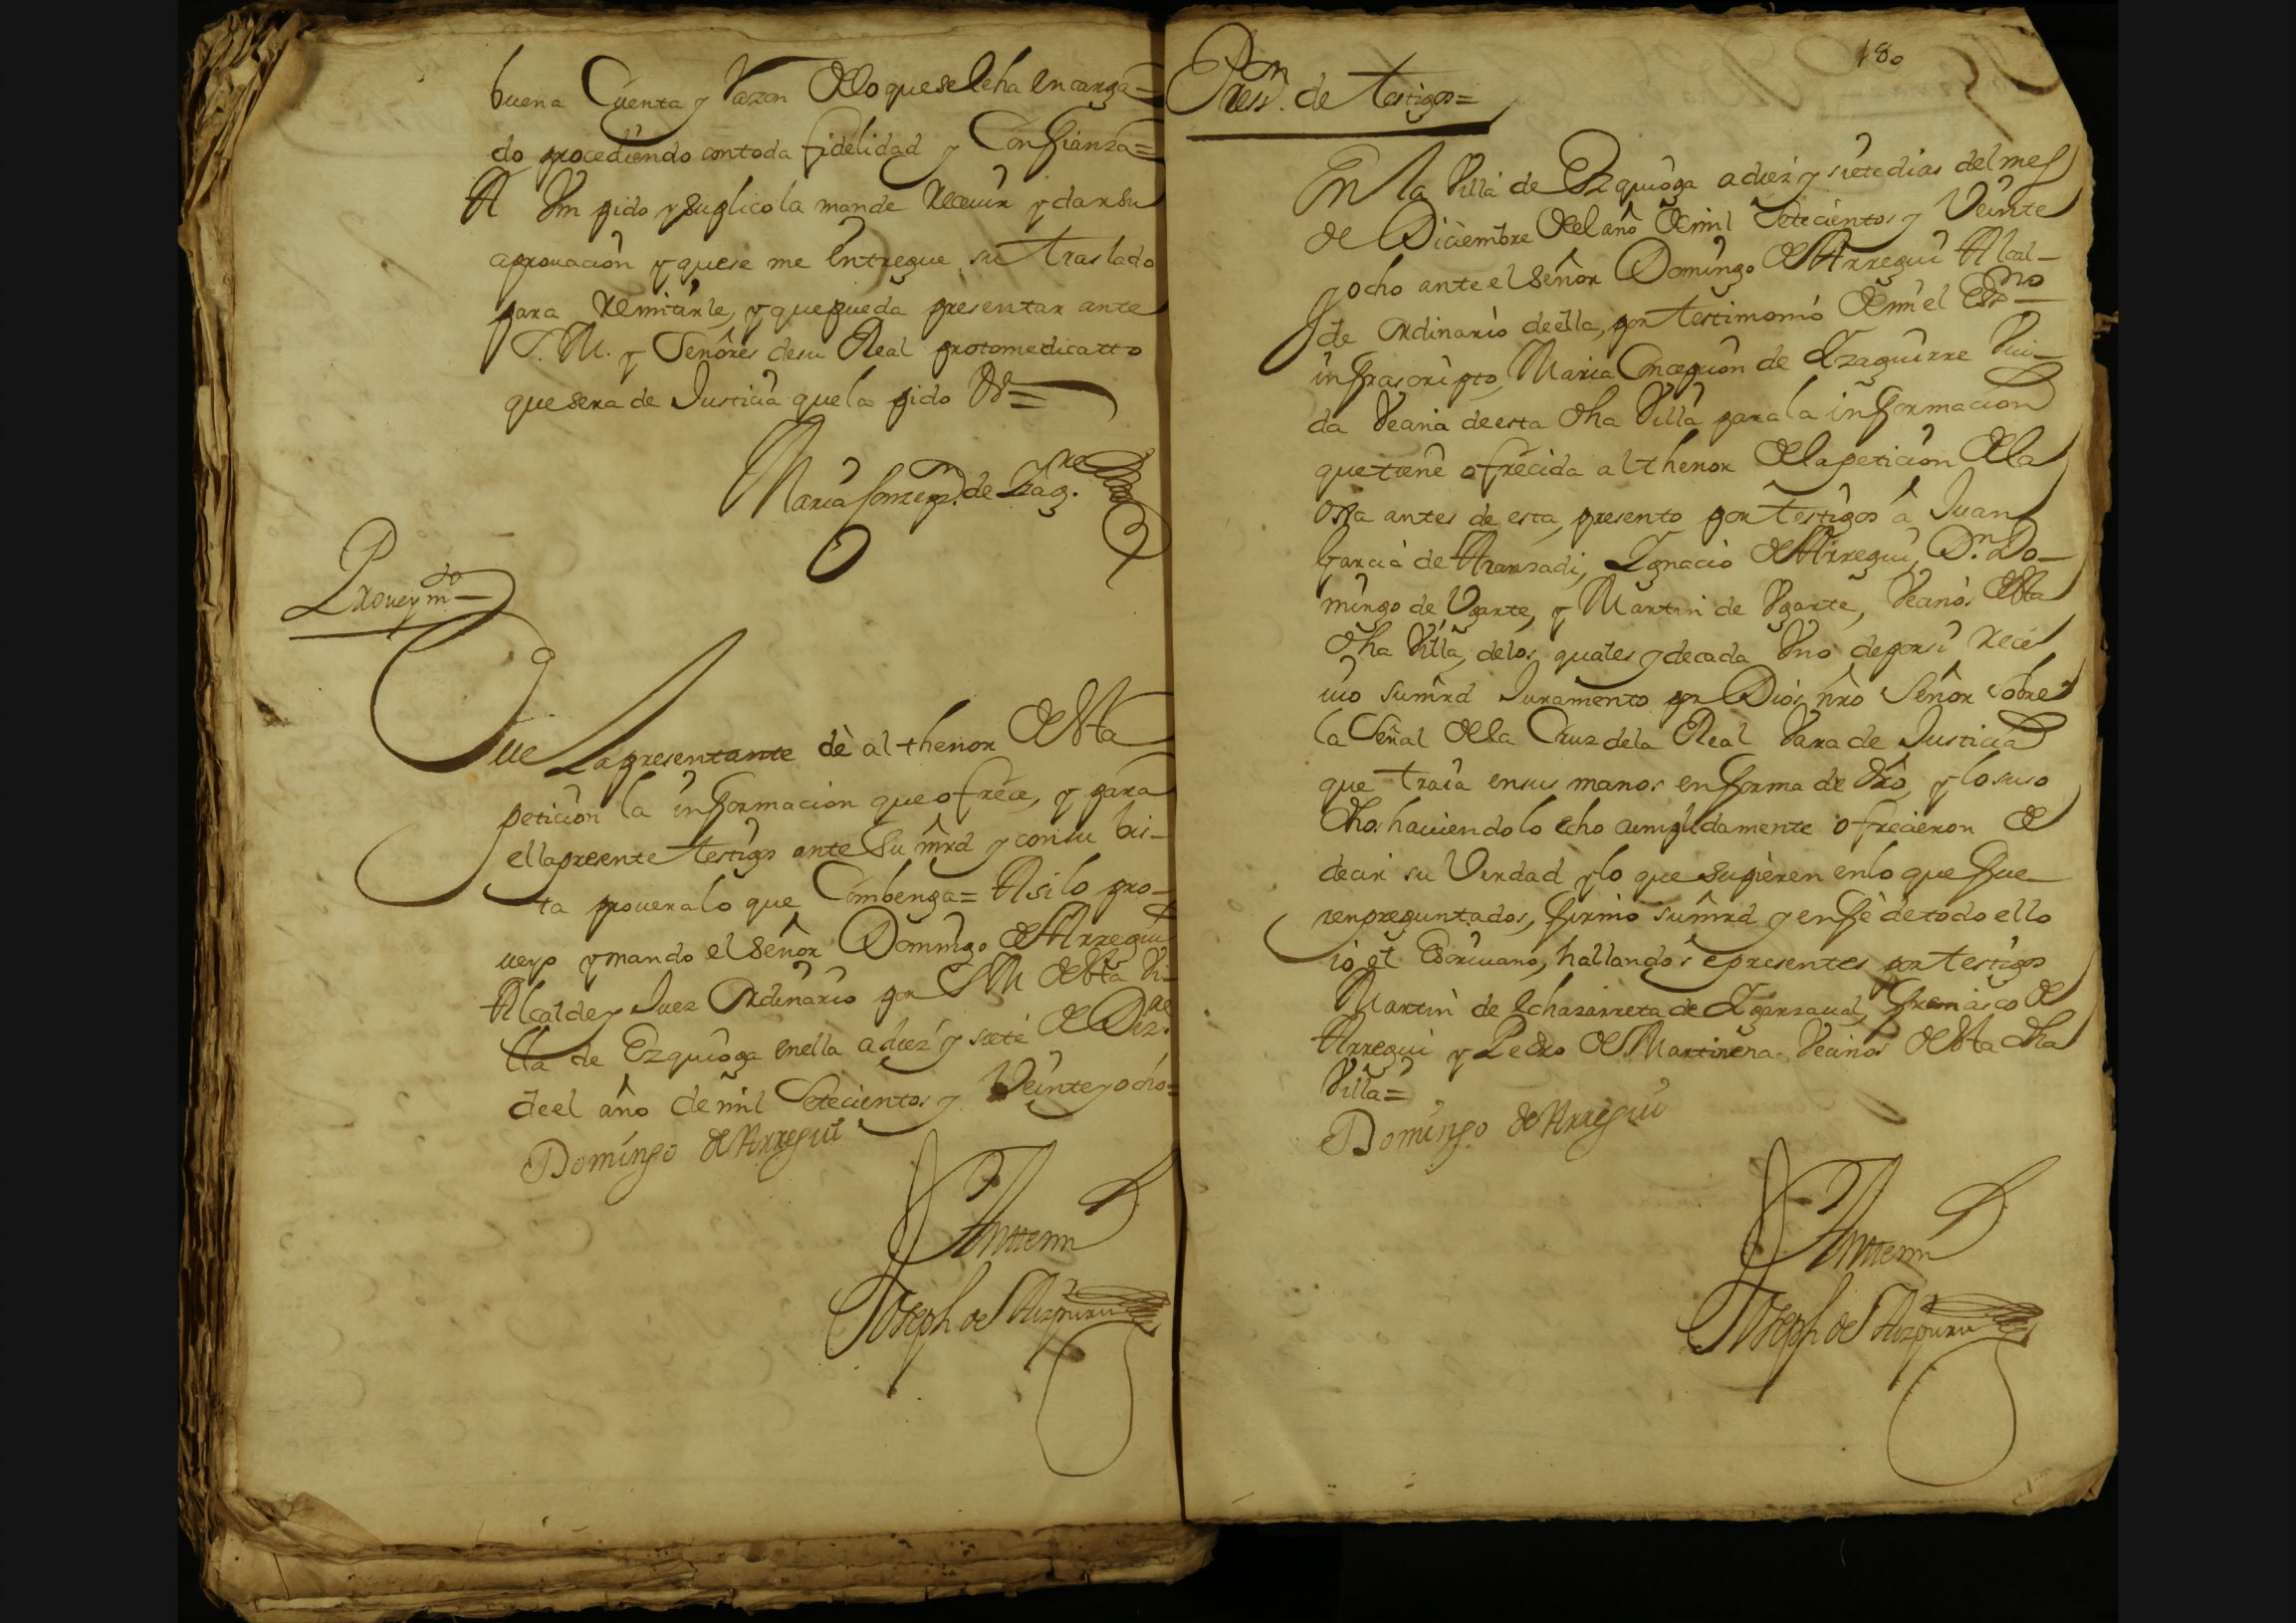 buena Cuenta y Razon de lo que se le ha encarga=
do procediendo con toda fidelidad y Confianza=
A Vm pido y suplico la mande Receuir y dar su
aprouación y que se me entregue su traslado
para Remitirle, y que pueda presentar ante
S. M. y Señores de su Real protomedicatto
que sera de Justicia que la pido &ª=
Maria Conzepn. de Yzag.rre
Proueym.do
Que La presentante dè al thenor de esta
petición la información que ofrece, y para
ella preente testigos ante Su mrd y con su bis-
ta prouera lo que Combenga= Asi lo pro-
ueyo y mando el señor Domingo de Arregui
Alcalde y Juez Ordinario por S M de esta Vi-
lla de Ezquioga en ella a diez y siete de Diz.re
de el año de mil Setecientos y Veinte y ocho=
Domingo de Arregui
Ante mi
Joseph de Aizpuru
180
Presn. de testigos=
En la Villa de Ezquioga a diez y siete dias del mes
de Diciembre del año de mil Setecientos y Veinte
y ocho ante el señor Domingo de Arregui Alcal-
de ordinario de ella, por testimonio de mi el Essno
infrascripto, Maria Concepción de Yzaguirre Viu-
da Vecina de esta dha Villa para la información
que tiene ofrecida al thenor de la petición de la
otra antes de esta, presento por testigos â Juan
Garcia de Aranzadi, Ygnacio de Arregui, Dn. Do-
mingo de Ugarte, y Martin de Ugarte, Vecinos de esta
dha Villa, de los quales y de cada Uno de por si Rece
uio su mrd Juramento por Dios nro Señor sobre
la Señal de la Cruz de la Real Vara de Justicia
que traia en sus manos en forma de dro, y lo suso
dhos hauiendo lo echo cumplidamente ofrecieron de
decir su Verdad y lo que supieren en lo que fue-
ren preguntados, firmo su mrd y en fè de todo ello
io el Escriuano, hallandose presentes por testigos
Martin de Echazarreta de Ygarzaual, Francisco de
Arregui y Pedro de Martirena Vecinos de esta dha
Villa=
Domingo de Arregui
Ante mi
Joseph de Aizpuru